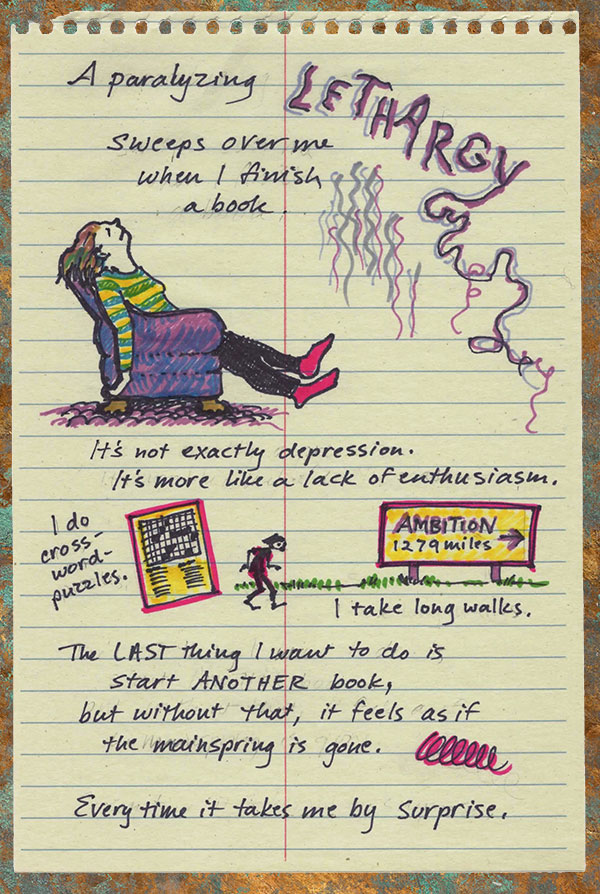 A paralyzing LETHARGY
sweeps over me
when I finish
a book.
It's not exactly depression.
It's more like a lack of enthusiasm.
I do
cross-
word-
puzzles.
AMBITION
1279 miles →
I take long walks.
The LAST thing I want to do is
start ANOTHER book,
but without that, it feels as if
the mainspring is gone.
Every time it takes me by surprise.